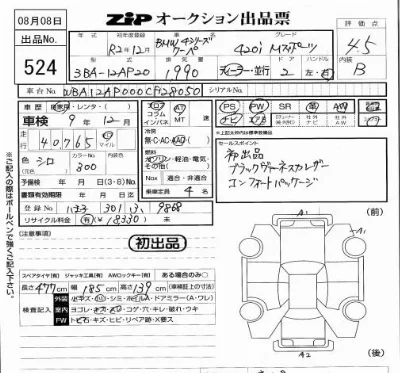 08月08日
ZIP オークション出品票
出品No.
524
年式 初年度登録
R2年12月
車名
BMW 4シリーズ
クーペ
グレード
420i Mスポーツ
評価点
4.5
3BA-12AP20
1,990
ディーラー・並行
2
左・右
内装
B
車台No.
シリアルNo.
車歴 自家用・レンタ・( )
車検 9年12月
走行 40,765 km マイル
色 シロ
カラーNo.
300
予備検 年 月 日(3・8)No.
書類有効期限 年 月 日
登録No.
301
リサイクル料金 (有) ¥18330 無
フロア コラム インパネ
AT MT
冷房
無・C・AC・AAC
燃料
ガソリン・軽油・電気・
その他( )
Nox 適合・非適合
乗車定員 4名
PS PW SR 革 AW
ナビ TV
セールスポイント
初出品
ブラックヴァーネスカレザー
コンフォートパッケージ
《注意事項》
初出品
スペアタイヤ[有] ジャッキ工具[有] AWロックキー[有] ある場合のみ○
長さ477cm 幅185cm 高さ139cm (車検証上の寸法)
検査記入
外装
内装
ヨゴレ・コゲ・穴・キレ・破れ・ウキ
PW
トビ石・キズ・ヒビ・リペア跡・X要ス
※ご記入の際はボールペンで強くご記入下さい。
A1
(前)
A2
(後)